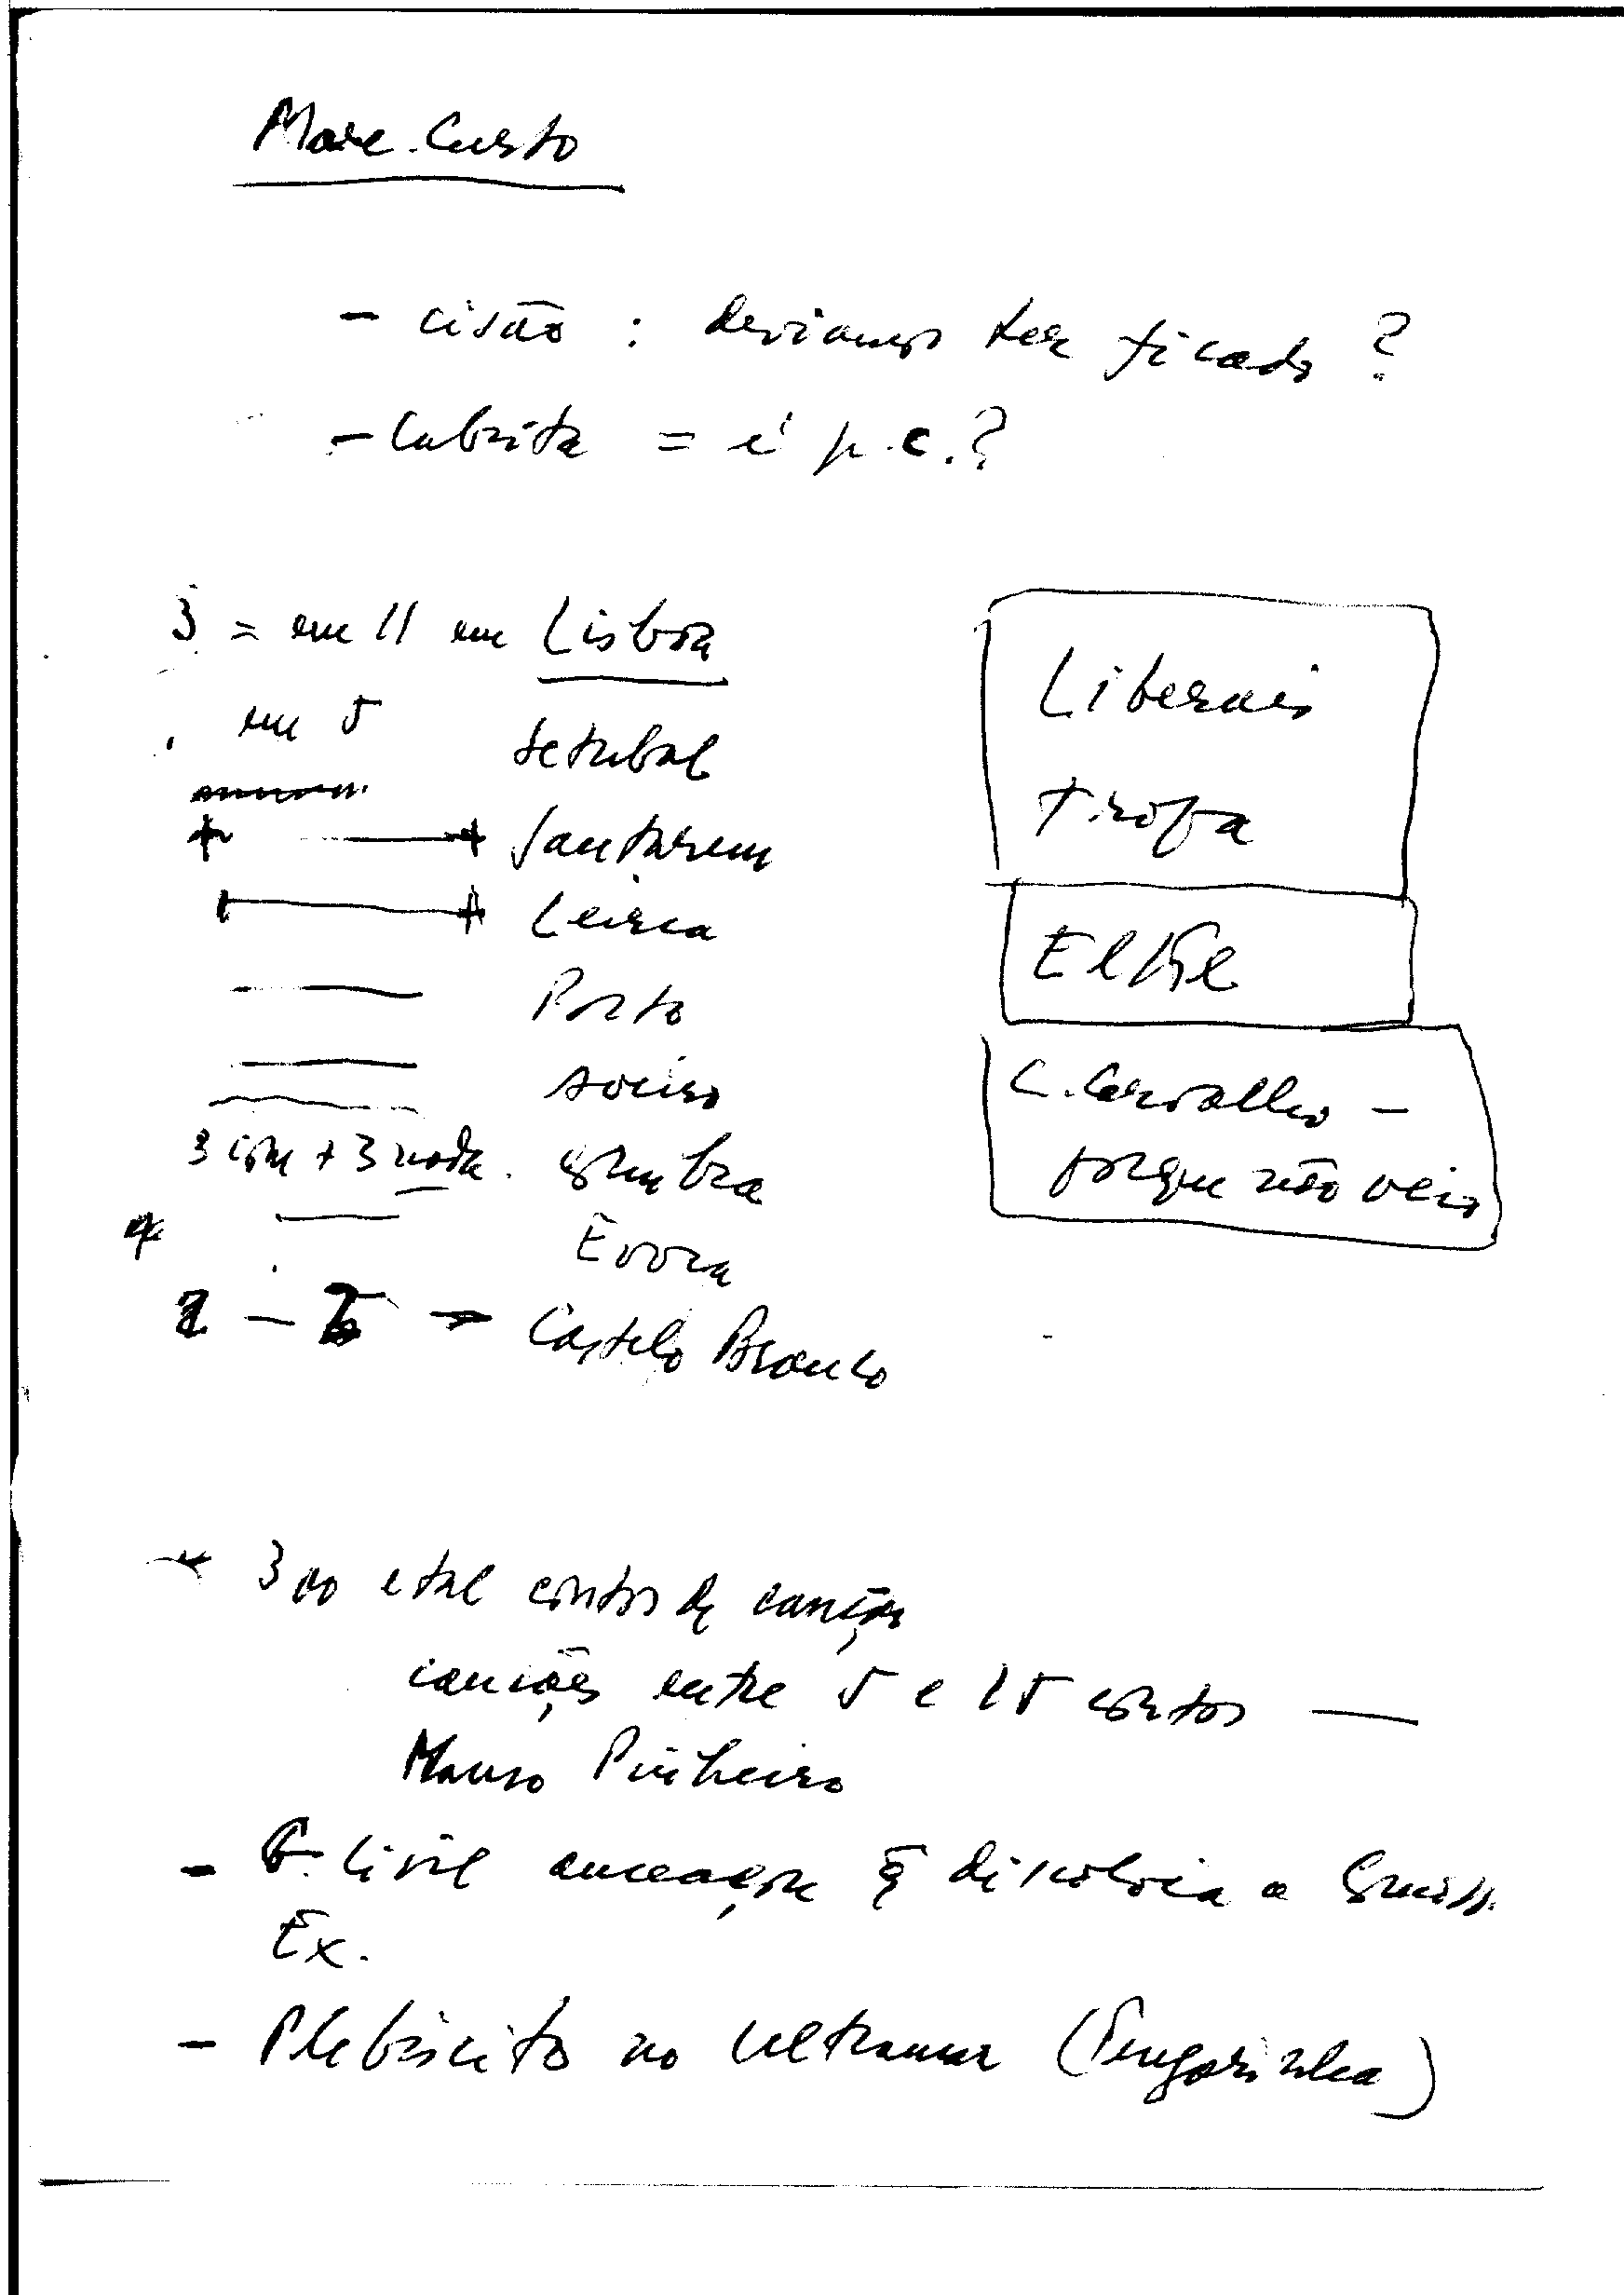 Marc. Custo
- cisão : deviamos ter ficado ?
- Cabrita = é p.c.?
3 = em 11 em Lisboa
em 5 Setubal
Santarem
Leiria
Porto
Aveiro
3 com + 3 Coimbra
Évora
Castelo Branco
Liberais
Trofa
C. Carvalho -
porque não veio
300 e tal contos de cauções
cauções entre 5 e 15 contos —
Mauro Pinheiro
- G. Civil ameaçou q̃ dissolvia a
Ex.
- Plebiscito no Ultramar (Fengarinha)